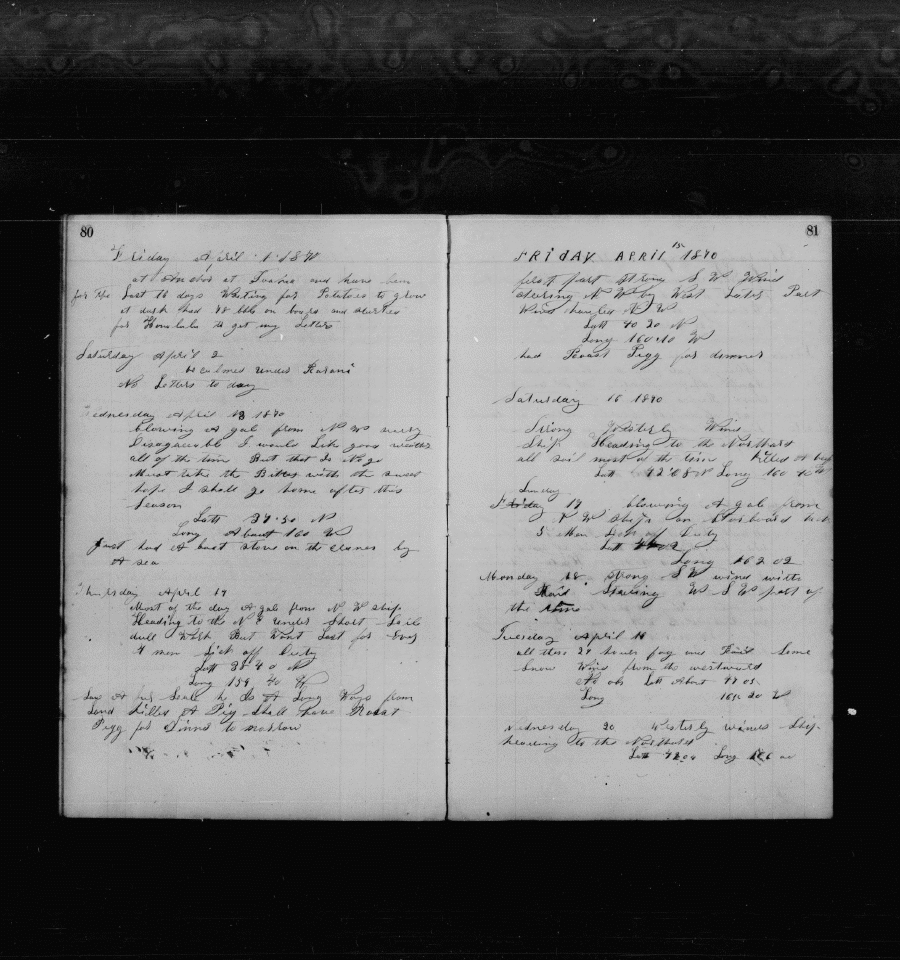 80
Friday April 1 1870
at Anchor at and have been
for the Last 16 days Waiting for Potatoes to grow
at dusk had 88 bbls on and started
for Honolulu to get my Letters
Saturday April 2
becalmed under
No Letters to day
Wednesday April 13 1870
blowing A gale from N W very
Disagreeable I would Like good weather
all of the time But that do no go
Must take the Bitter with the sweet
hope I shall go home after this
Season
Latt 37.50 N
Long About 160 W
Just had A boat stove on the cranes by
A sea
Thursday April 14
Most of the day A gale from N W ship
Heading to the N E under Short Sail
dull Work But Wont Last for Ever
4 men Sick off Duty
Latt 38 40 N
Long 159 40 W
See A fur Seal he is A Long Ways from
Land killed A Pig Shall have Roast
Pigg for Dinner to morrow
81
FRIDAY APRIL 15 1870
first part strong S W Wind
steering N W by West Later Part
Wind hauled N W
Latt 40 20 N
Long 160.10 W
had Roast Pigg for dinner
Saturday 16 1870
Strong Westerly Wind
Ship Heading to the Northard
all sail most of the time killed A
Latt 42 08 N Long 160 W
Sunday
Friday 17 blowing A gale from
N W Ship on Starboard tack
5 Men off Duty
Latt 02
Long 162 02
Monday 18 strong S W wind with
Steering W S W part of
the time
Tuesday April
all these 24 hours fog and Some
Snow Wind from the westward
No obs Latt About 47 05
Long 164 20 W
Wednesday 20 Westerly winds Ship
heading to the Northard
Latt 48 04 Long